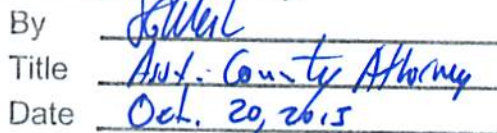 By
Title Asst. County Attorney
Date Oct. 20, 2015